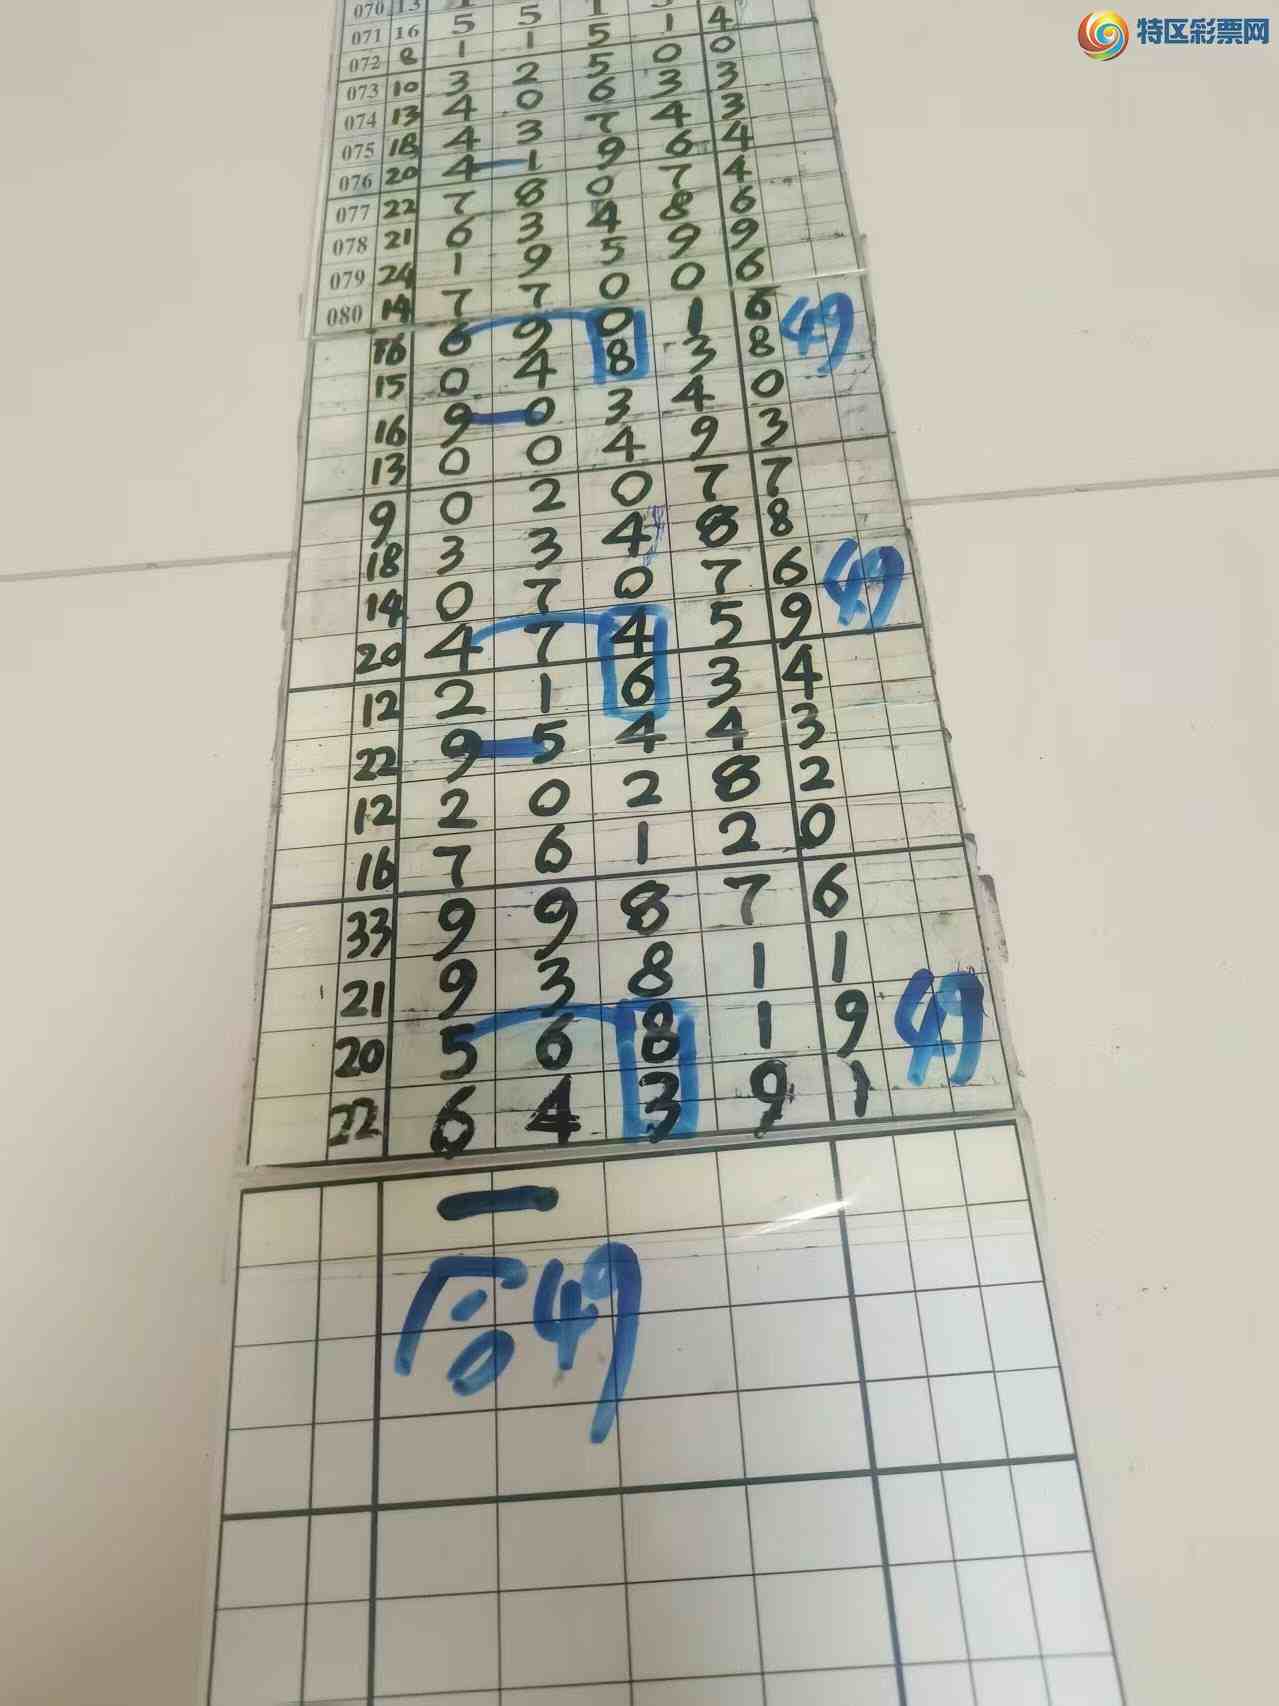 特区彩票网
070 13
071 16 5 5 1 4
072 8 1 1 5 0 0
073 10 3 2 5 3 3
074 13 4 0 6 4 3
075 18 4 3 7 6 4
076 20 4 1 9 7 4
077 22 7 8 0 8 6
078 21 6 3 4 9 9
079 24 1 9 5 0 6
080 14 7 7 0 1 6
16 6 9 0 3 8 49
15 0 4 8 4 0
16 9 0 3 9 3
13 0 0 4 7 7
9 0 2 0 8 8
18 3 3 4 7 6
14 0 7 0 5 9 49
20 4 7 4 3 4
12 2 1 6 4 3
22 9 5 4 8 2
12 2 0 2 2 0
16 7 6 1 7 6
33 9 9 8 1 1
21 9 3 8 1 9
20 5 6 8 9 1 49
22 6 4 3
合49